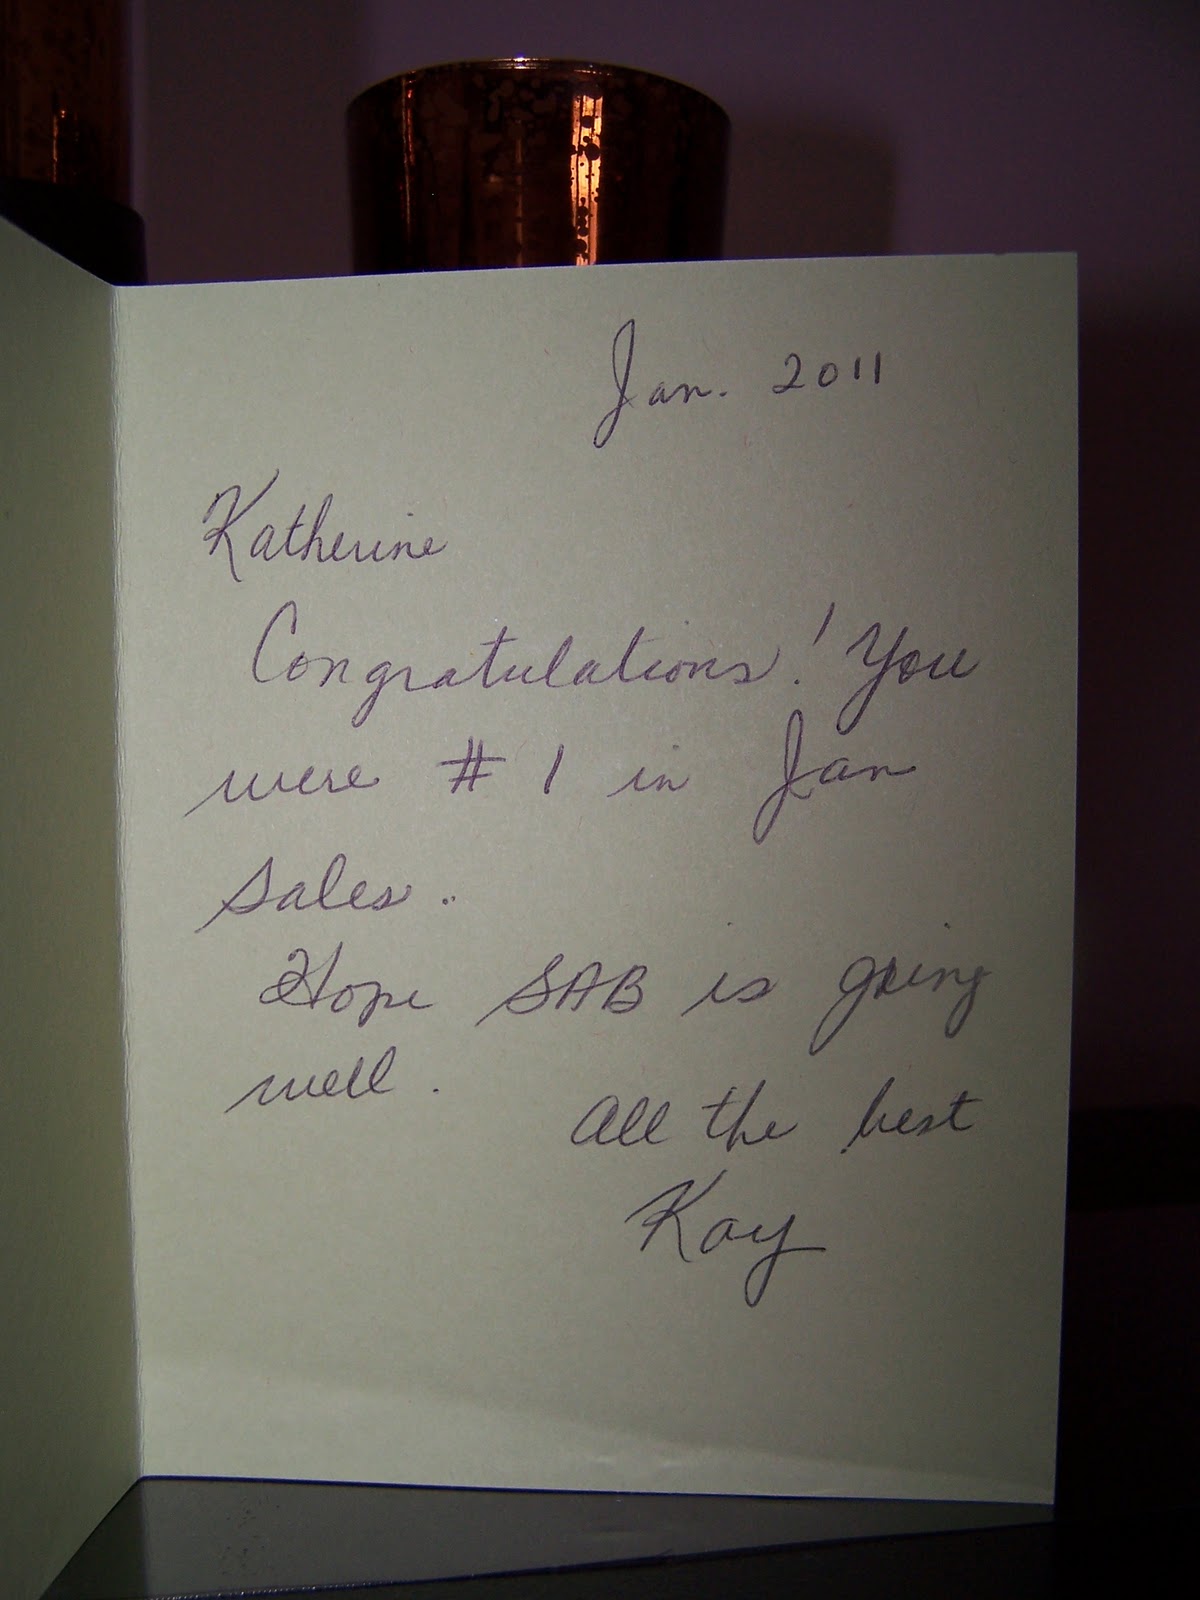 Jan. 2011
Katherine
Congratulations! You
were # 1 in Jan
sales..
Hope SAB is going
well.
All the best
Kay